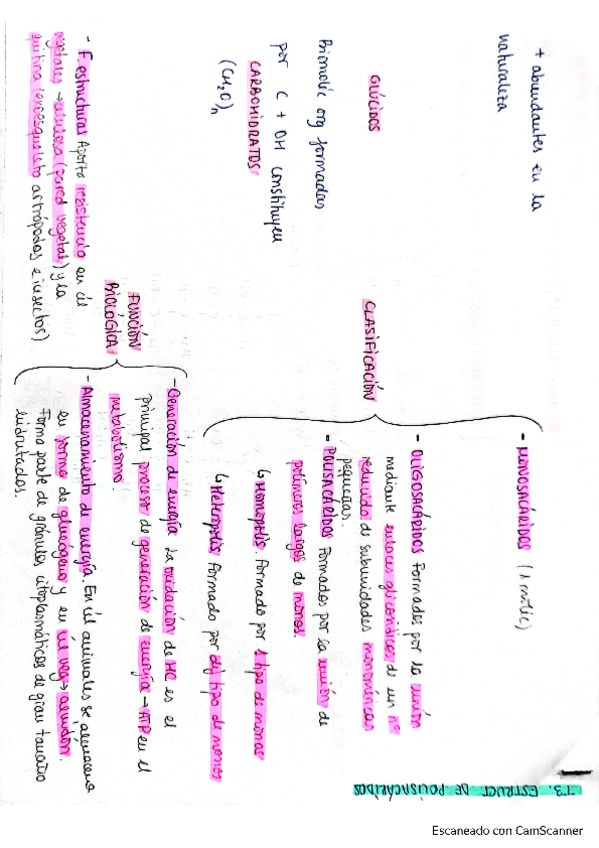 T3. ESTRUCT DE POLISACÁRIDOS
+ abundantes en la
naturaleza
GLÚCIDOS
Biomoléc org formadas
por C + OH constituyen
CARBOHIDRATOS
(CH₂O)n
CLASIFICACIÓN
- MONOSACÁRIDOS (1 moléc)
- OLIGOSACÁRIDOS Formados por la unión
mediante enlaces glicosídicos de un nº
reducido de subunidades monoméricas
pequeñas.
- POLISACÁRIDOS Formados por la unión de
polímeros largos de monos.
↳ Homopolis. Formado por 1 tipo de monos
↳ Heteropolis Formado por dif tipo de monos
FUNCIÓN
BIOLÓGICA
- Generación de energía La oxidación de HC es el
principal proceso de generación de energía → ATP en el
metabolismo.
- Almacenamiento de energía. En cél animales se almacena
en forma de glucógeno y en cél veg → almidón.
Forma parte de gránulos citoplasmáticos de gran tamaño
hidratados.
- F. estructural Aporta resistencia en cél
vegetales → celulosa (pared vegetal) y la
quitina (exoesqueleto artrópodos e insectos)
Escaneado con CamScanner